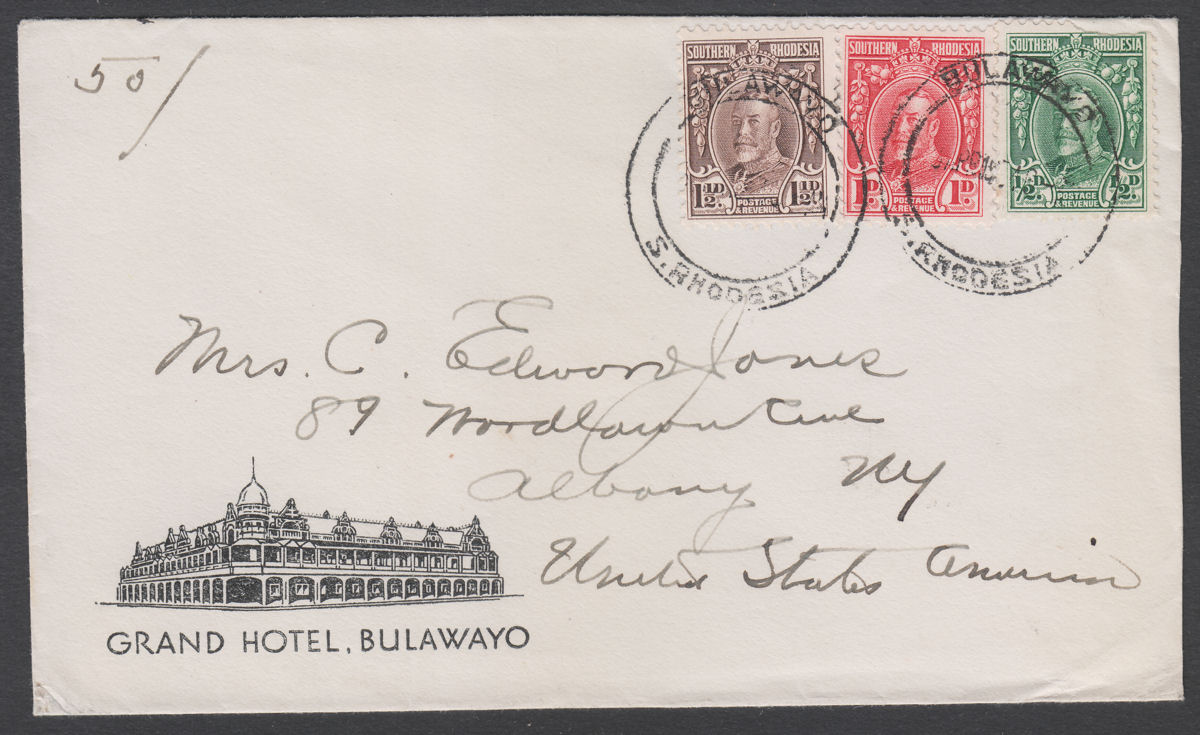 50/
SOUTHERN RHODESIA
1½D. POSTAGE & REVENUE 1½D.
SOUTHERN RHODESIA
1D. POSTAGE & REVENUE 1D.
SOUTHERN RHODESIA
½D. POSTAGE & REVENUE ½D.
BULAWAYO
S. RHODESIA
BULAWAYO
S. RHODESIA
Mrs. C. Edward Jones
89 Woodlawn Ave
Albany NY
United States America
GRAND HOTEL, BULAWAYO